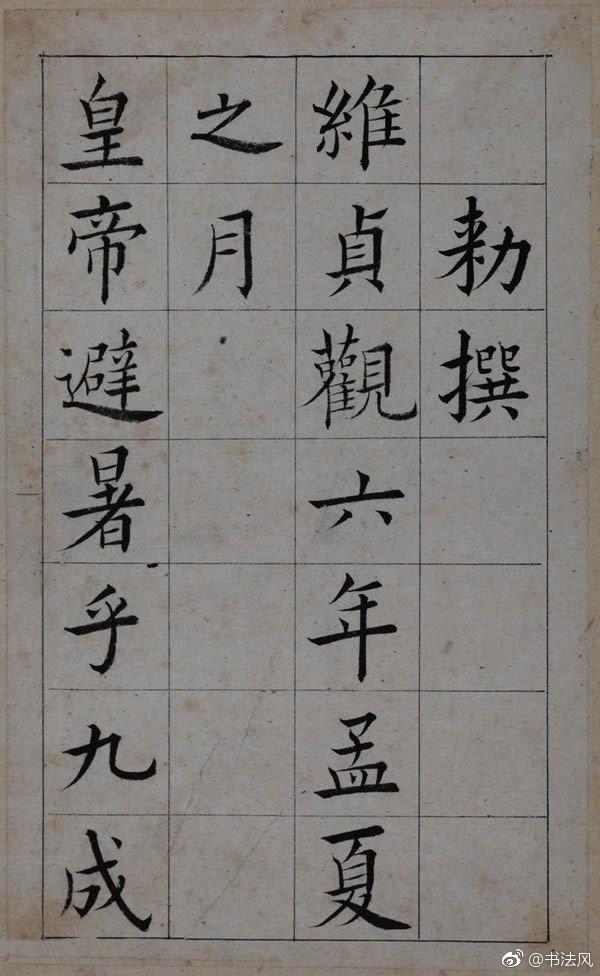 勑撰
維貞觀六年孟夏
之月
皇帝避暑乎九成
@书法风